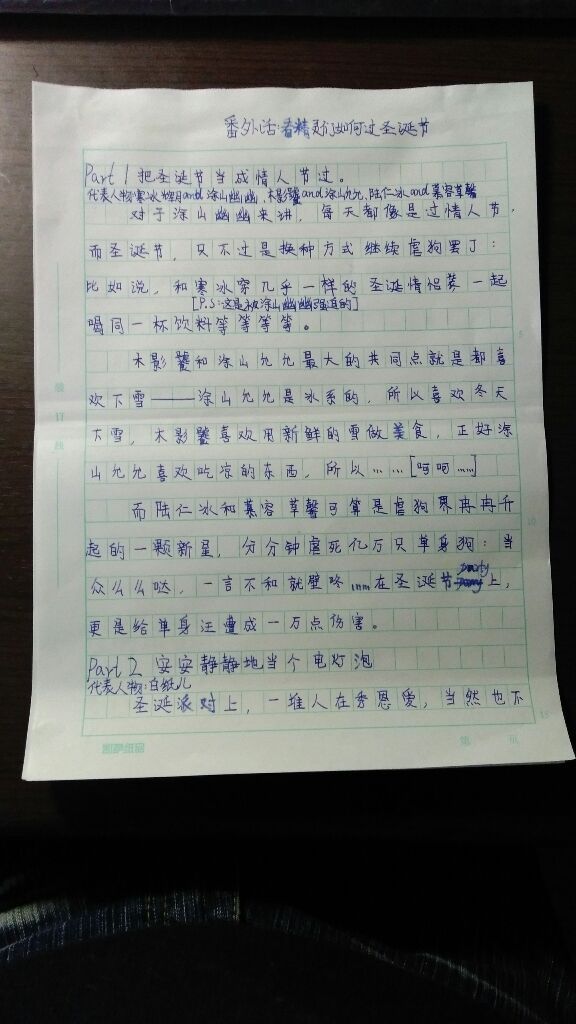 番外话:香精灵们如何过圣诞节
Part 1 把圣诞节当成情人节过。
代表人物:寒冰 and 涂山幽幽,木影饕 and 涂山允允,陆仁冰 and 慕容草馨
对于涂山幽幽来讲,每天都像是过情人节,
而圣诞节,只不过是换种方式继续虐狗罢了:
比如说,和寒冰穿几乎一样的圣诞情侣装一起
[P.S:这是被涂山幽幽强迫的]
喝同一杯饮料等等等等。
木影饕和涂山允允最大的共同点就是都喜
欢下雪———涂山允允是冰系的,所以喜欢冬天
下雪,木影饕喜欢用新鲜的雪做美食,正好涂
山允允喜欢吃凉的东西,所以……[呵呵……]
而陆仁冰和慕容草馨可算是虐狗界冉冉升
起的一颗新星,分分钟虐死亿万只单身狗:当
众么么哒,一言不和就壁咚……在圣诞节party上,
更是给单身汪遭成一万点伤害。
Part 2 安安静静地当个电灯泡
代表人物:白纸儿
圣诞派对上,一堆人在秀恩爱,当然也不
装
订
线
5
10
15
第 页